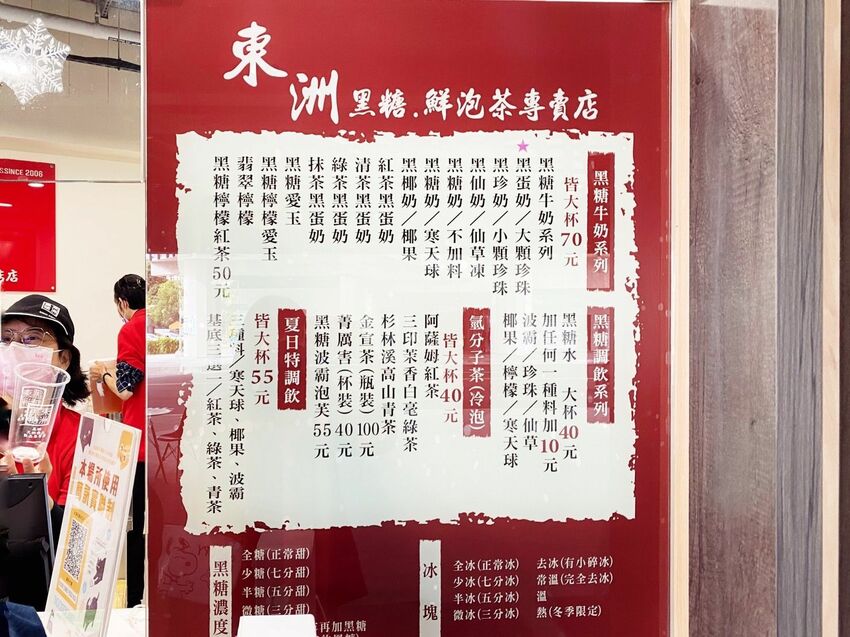 東洲黑糖.鮮泡茶專賣店
黑糖牛奶系列
皆大杯70元
黑糖牛奶系列
★
黑蛋奶／大顆珍珠
黑珍奶／小顆珍珠
黑仙奶／仙草凍
黑糖奶／不加料
黑糖奶／寒天球
黑椰奶／椰果
紅茶黑蛋奶
清茶黑蛋奶
綠茶黑蛋奶
抹茶黑蛋奶
黑糖愛玉
黑糖檸檬愛玉
翡翠檸檬
黑糖檸檬紅茶50元
黑糖調飲系列
黑糖水 大杯40元
加任何一種料加10元
波霸／珍珠／仙草
椰果／檸檬／寒天球
氫分子茶(冷泡)
皆大杯40元
阿薩姆紅茶
三印茉香白毫綠茶
杉林溪高山青茶
金宣茶(瓶裝)100元
菁厲害(杯裝)40元
黑糖波霸泡芙55元
夏日特調飲
皆大杯55元
三種料／寒天球、椰果、波霸
基底三選一／紅茶、綠茶、青茶
黑糖濃度
全糖(正常甜)
少糖(七分甜)
半糖(五分甜)
微糖(三分甜)
再加黑糖
冰塊
全冰(正常冰)
少冰(七分冰)
半冰(五分冰)
微冰(三分冰)
去冰(有小碎冰)
常溫(完全去冰)
溫
熱(冬季限定)
SINCE 2006
店
本場所使用